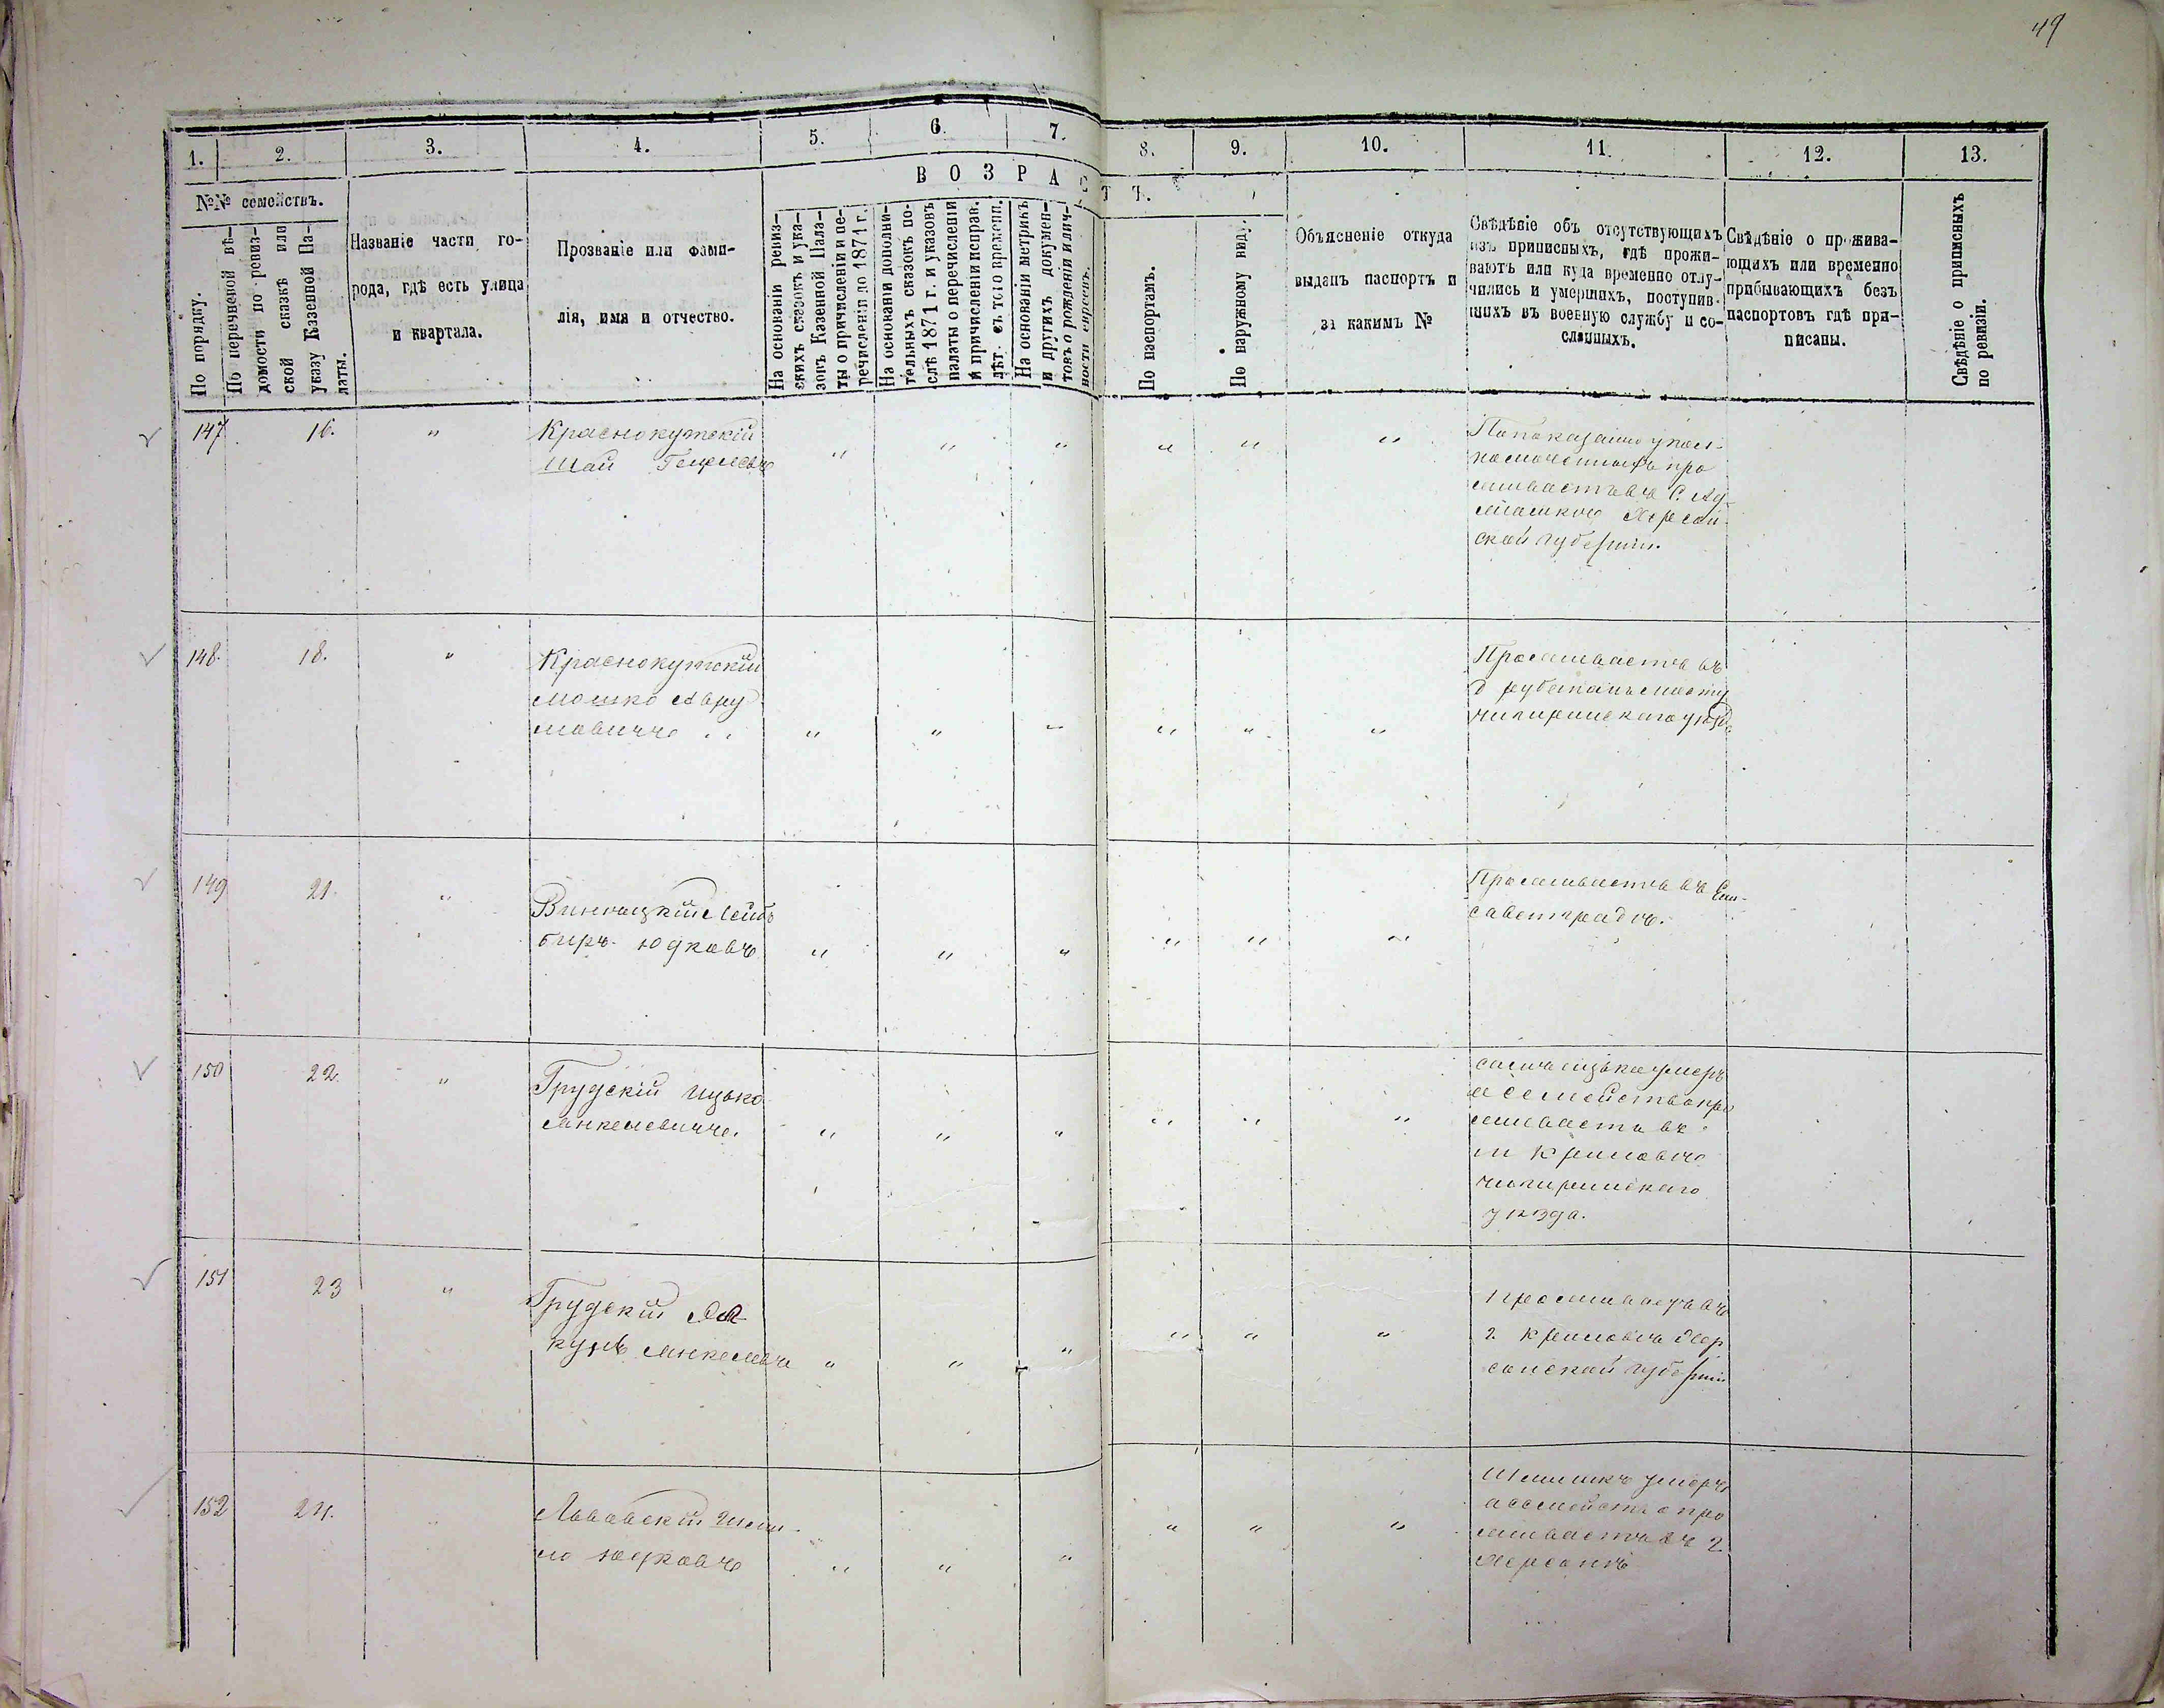 49
1. 2. 3. 4. 5. 6. 7. 8. 9. 10. 11. 12. 13.
№№ семействъ.
По порядку.
По перечневой вѣ-
домости по ревиз-
ской сказкѣ или
указу Казенной Па-
латы.
Названіе части го-
рода, гдѣ есть улица
и квартала.
Прозваніе или фами-
лія, имя и отчество.
ВОЗРАСТЪ.
На основаніи ревиз-
скихъ сказокъ и ука-
зовъ Казенной Пала-
ты о причисленіи и пе-
речисленіи до 1871 г.
На основаніи дополни-
тельныхъ сказокъ по-
слѣ 1871 г. и указовъ
палаты о перечисленіи
и причисленіи исправ.
лѣт. съ того времени.
На основаніи метрикъ
и другихъ докумен-
товъ о рожденіи и лич-
ности евреевъ.
По паспортамъ.
По наружному виду.
Объясненіе откуда
выданъ паспортъ и
за какимъ №
Свѣдѣніе объ отсутствующихъ
изъ приписныхъ, гдѣ прожи-
ваютъ или куда временно отлу-
чились и умершихъ, поступив-
шихъ въ военную службу и со-
сланныхъ.
Свѣдѣніе о прожива-
ющихъ или временно
прибывающихъ безъ
паспортовъ гдѣ при-
писаны.
Свѣдѣніе о приписныхъ
по ревизіи.
147 16. "
Краснокутскій
Шай
" " " " " "
По показанію упол-
номоченныхъ про
живаетъ въ С.
Херсон-
ской губерніи.
148. 18. "
Краснокутскій
Мошко Авру
мовичъ
" " " " " "
Проживаетъ въ
Чигиринскаго уѣзда
149 21. "
Винницкій Лейб
Юдковъ
" " " " " "
Проживаетъ въ Ели-
саветградѣ.
150 22. "
Грудскій Ицько
Янкелевичъ.
" " " " " "
самъ Ицько умеръ
а семейство про
живаетъ въ
м Крыловѣ
Чигиринскаго
уѣзда.
151 23 "
Грудскій Я
купъ Янкелевъ
" " " " " "
Проживаетъ въ
г. Крыловѣ Хер
сонской губерніи
152 24. "
Львовскій
Юдковъ
" " " " " "
умеръ
а семейство про
живаетъ въ г
Херсонѣ